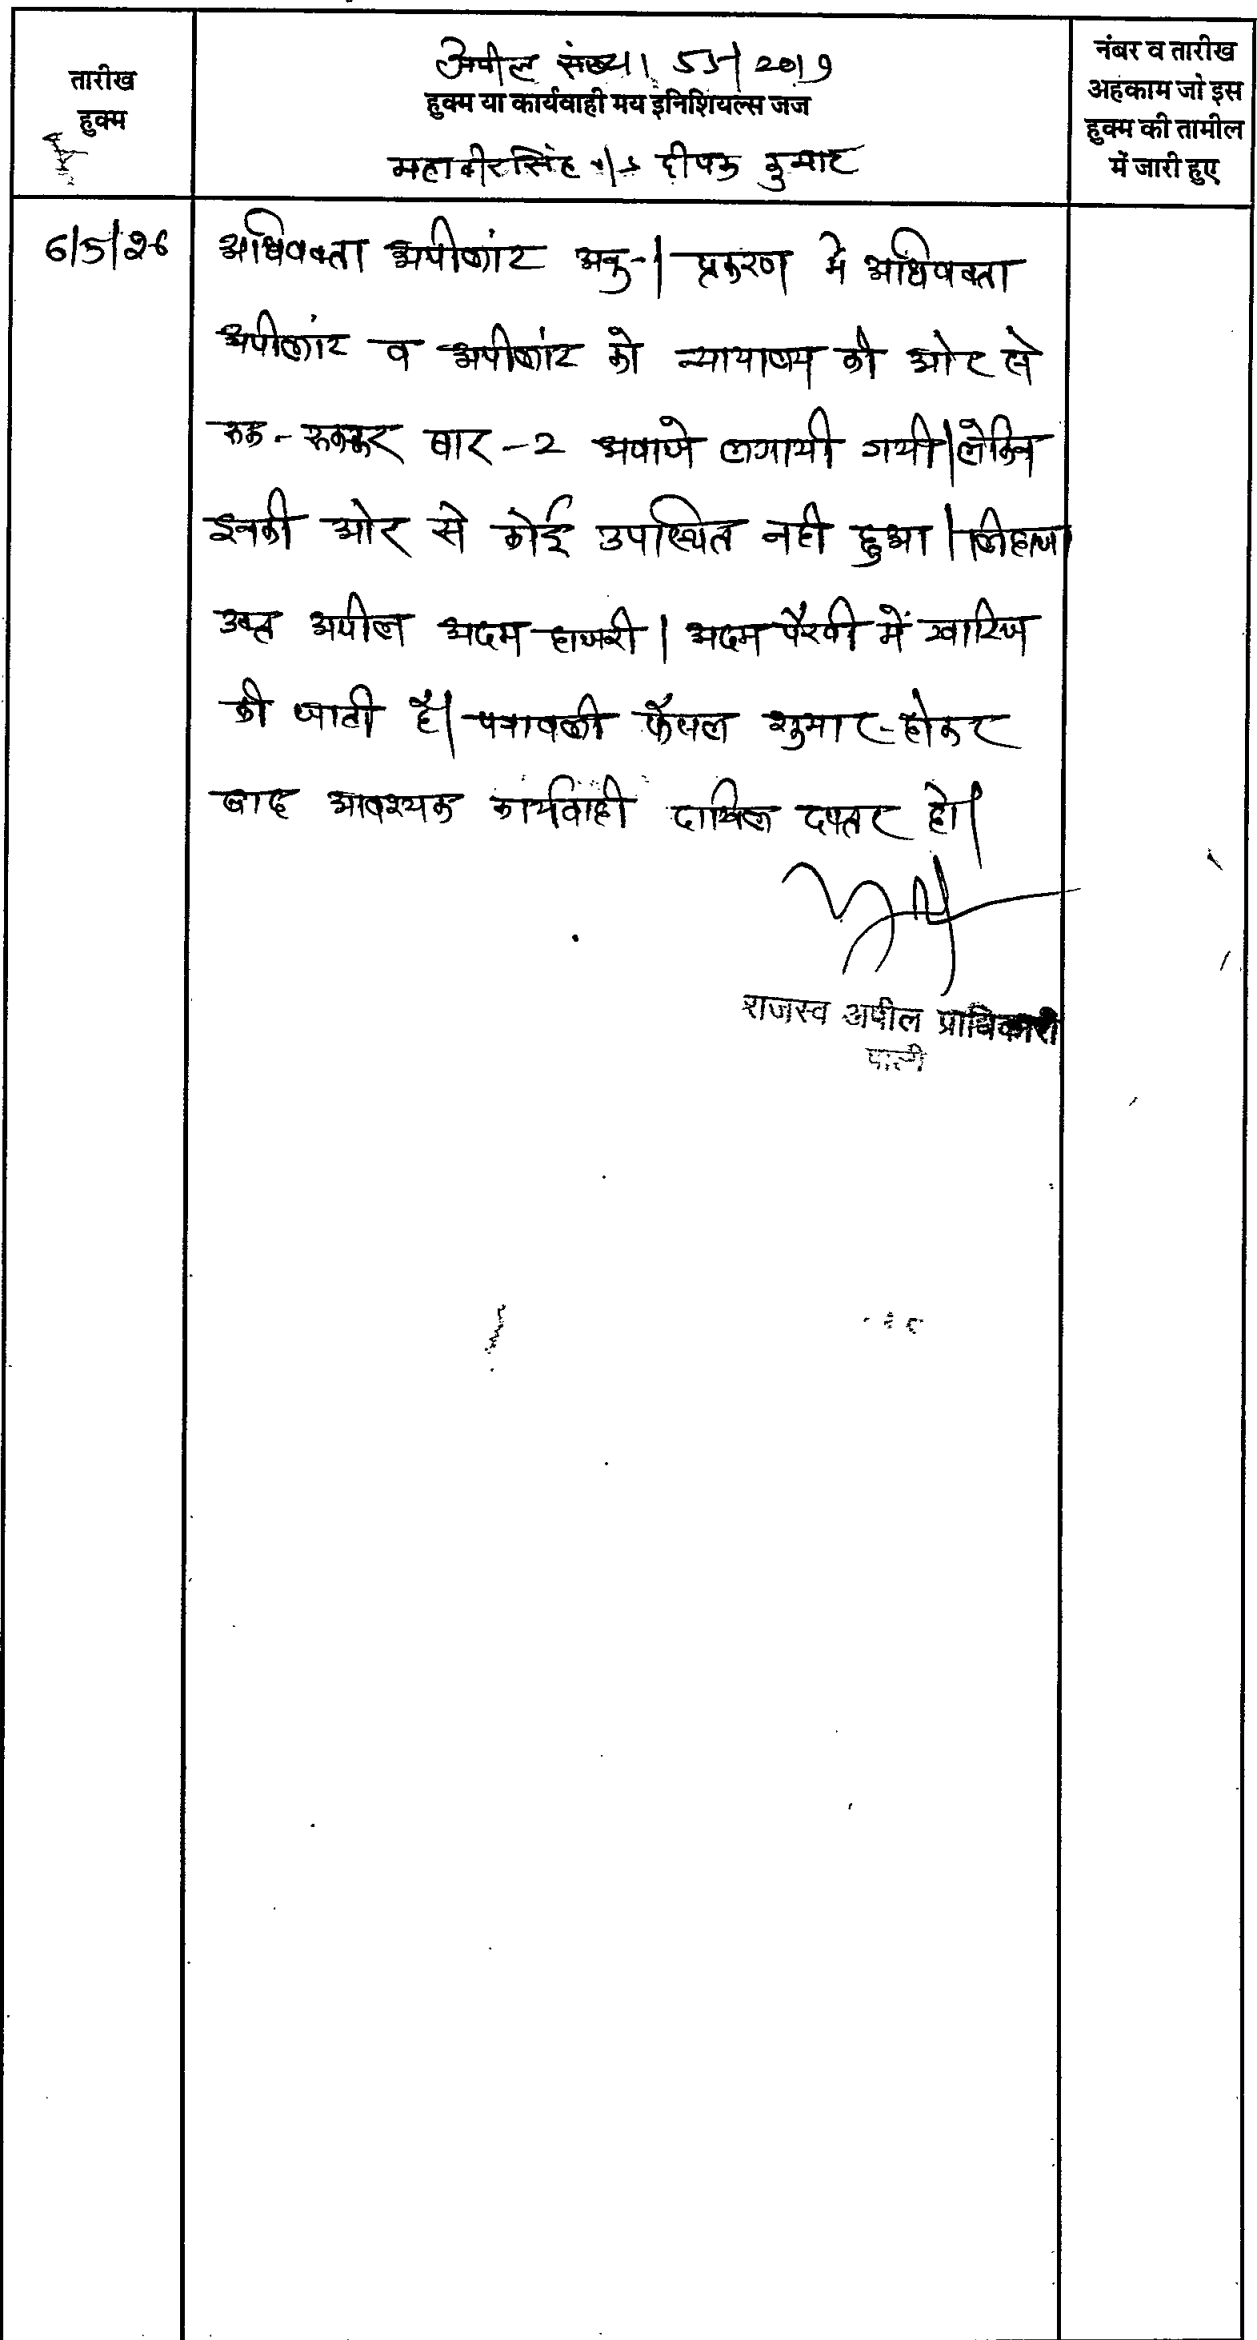 तारीख
हुक्म
अपील संख्या 55/2019
हुक्म या कार्यवाही मय इनिशियल्स जज
महावीरसिंह v/s दीपक कुमार
नंबर व तारीख
अहकाम जो इस
हुक्म की तामील
में जारी हुए
6/5/26
अधिवक्ता अपीलांट अनु-। प्रकरण में अधिवक्ता
अपीलांट व अपीलांट को न्यायालय की ओर से
रूक-रूककर बार-2 अवाजे लगायी गयी। लेकिन
इनकी ओर से कोई उपस्थित नही हुआ। लिहाजा
उक्त अपील अदम हाजरी। अदम पैरवी में खारिज
की जाती है। पत्रावली फैसल शुमार होकर
बाद आवश्यक कार्यवाही दाखिल दफ्तर हो।
राजस्व अपील प्राधिकारी
पाली